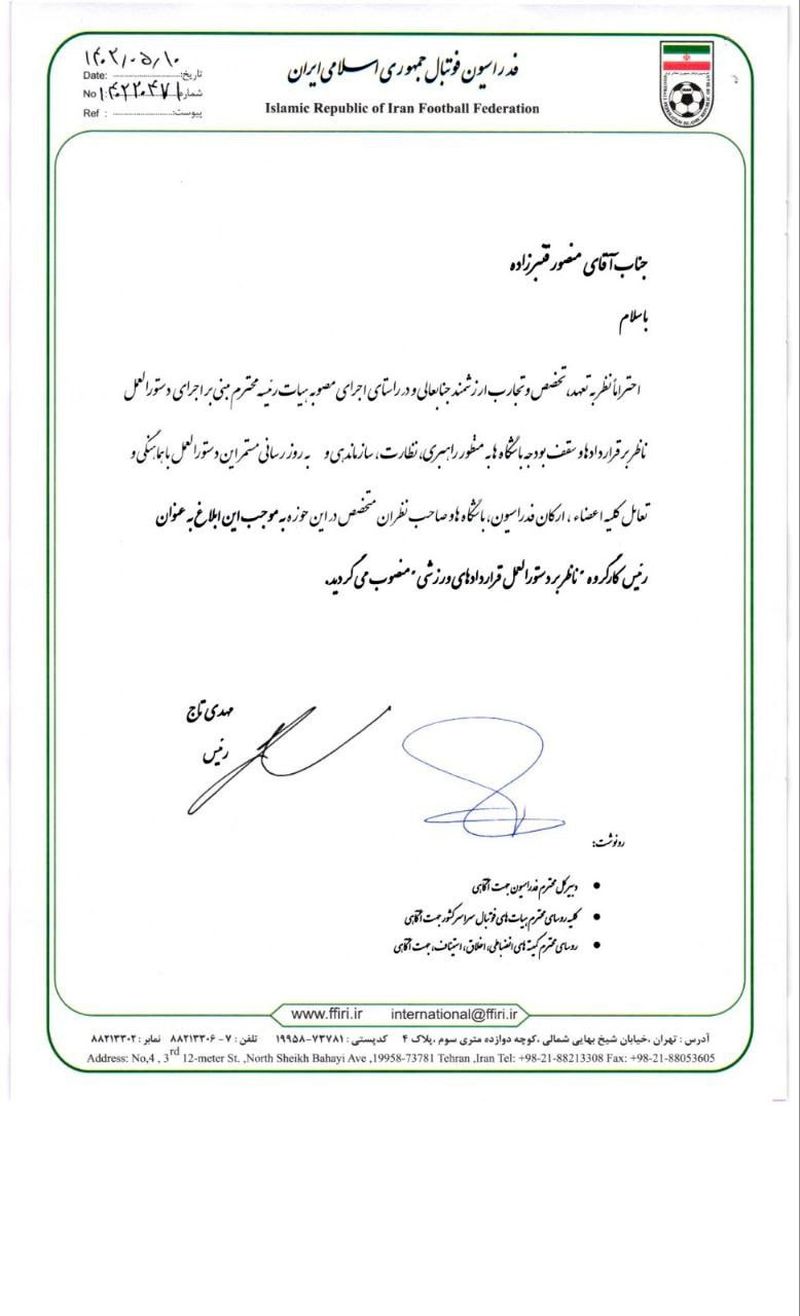 فدراسیون فوتبال جمهوری اسلامی ایران
Islamic Republic of Iran Football Federation
تاریخ: ۱۴۰۲/۰۵/۱۰
Date:
شماره No ۱۴۰۲۲۰۴۷۱
پیوست: Ref :
جناب آقای منصور قنبرزاده
با سلام
احتراماً نظر به تعهد، تخصص و تجارب ارزشمند جنابعالی و در راستای اجرای مصوبه هیات رئیسه محترم مبنی بر اجرای دستورالعمل
ناظر بر قراردادها و سقف بودجه باشگاه ها به منظور راهبری، نظارت، سازماندهی و به روز رسانی مستمر این دستورالعمل با هماهنگی و
تعامل کلیه اعضاء، ارکان فدراسیون، باشگاه ها و صاحب نظران متخصص در این حوزه به موجب این ابلاغ به عنوان
رئیس کارگروه "ناظر بر دستورالعمل قراردادهای ورزشی" منصوب می گردید.
مهدی تاج
رئیس
رونوشت:
• دبیرکل محترم فدراسیون جهت آگاهی
• کلیه روسای محترم هیات های فوتبال سراسر کشور جهت آگاهی
• روسای محترم کمیته های انضباطی، اخلاق، استیناف، جهت آگاهی
www.ffiri.ir international@ffiri.ir
آدرس : تهران ،خیابان شیخ بهایی شمالی ،کوچه دوازده متری سوم ،پلاک ۴ کدپستی : ۷۳۷۸۱-۱۹۹۵۸ تلفن : ۷ - ۸۸۲۱۳۳۰۶ نمابر : ۸۸۲۱۳۳۰۲
Address: No,4 , 3rd 12-meter St. ,North Sheikh Bahayi Ave ,19958-73781 Tehran ,Iran Tel: +98-21-88213308 Fax: +98-21-88053605